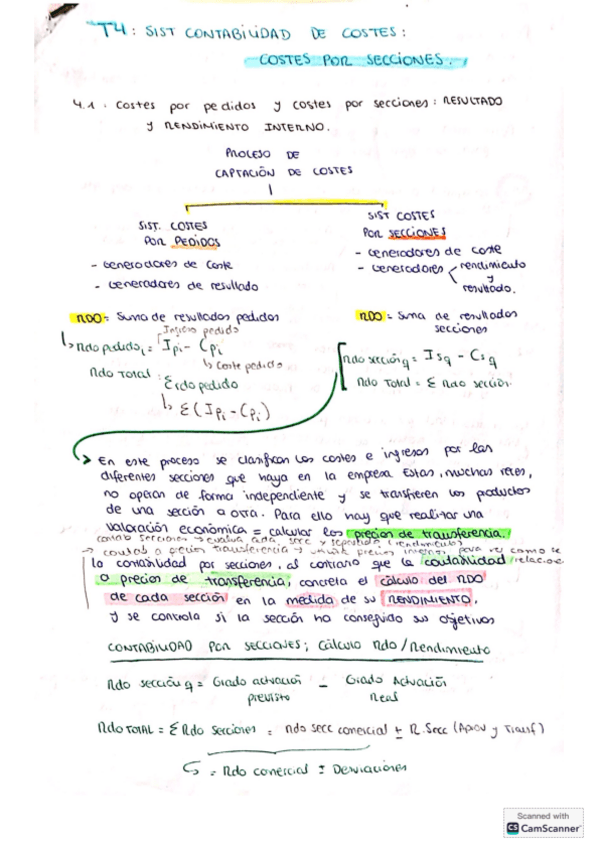 T4: SIST CONTABILIDAD DE COSTES:
COSTES POR SECCIONES.
4.1. Costes por pedidos y costes por secciones: RESULTADO
y RENDIMIENTO INTERNO.
PROCESO DE
CAPTACIÓN DE COSTES
SIST. COSTES
POR PEDIDOS
- Generadores de coste
- Generadores de resultado
SIST COSTES
POR SECCIONES
- Generadores de coste
- Generadores rendimiento
y
resultado.
RDO = Suma de resultados pedidos
Rdo pedido i = Ipi - Cpi
pedido
Coste pedido
Rdo Total : Σ rdo pedido
Σ(Ipi - Cpi)
RDO = Suma de resultados
secciones
Rdo sección q = Isq - Csq
Rdo Total = Σ Rdo sección.
En este proceso se clasifican los costes e ingresos por las
diferentes secciones que haya en la empresa. Estas, muchas veces,
no operan de forma independiente y se transfieren los productos
de una sección a OTRA. Para ello hay que realizar una
valoración económica = calcular los precios de transferencia.
contab secciones → evalua cada secc y
→ contab a precios transferencia → precios internos para ver como se
la contabilidad por secciones, al contrario que la contabilidad
a precios de transferencia, concreta el cálculo del RDO
de cada sección en la medida de su RENDIMIENTO,
y se controla si la sección ha conseguido su objetivos
CONTABILIDAD POR SECCIONES; Cálculo Rdo/Rendimiento
Rdo sección q = Grado actuación previsto - Grado Actuación Real
Rdo TOTAL = Σ Rdo Secciones = Rdo secc comercial ± R.Secc (Aprov y Transf)
= Rdo comercial ± Desviaciones
Scanned with
CS CamScanner